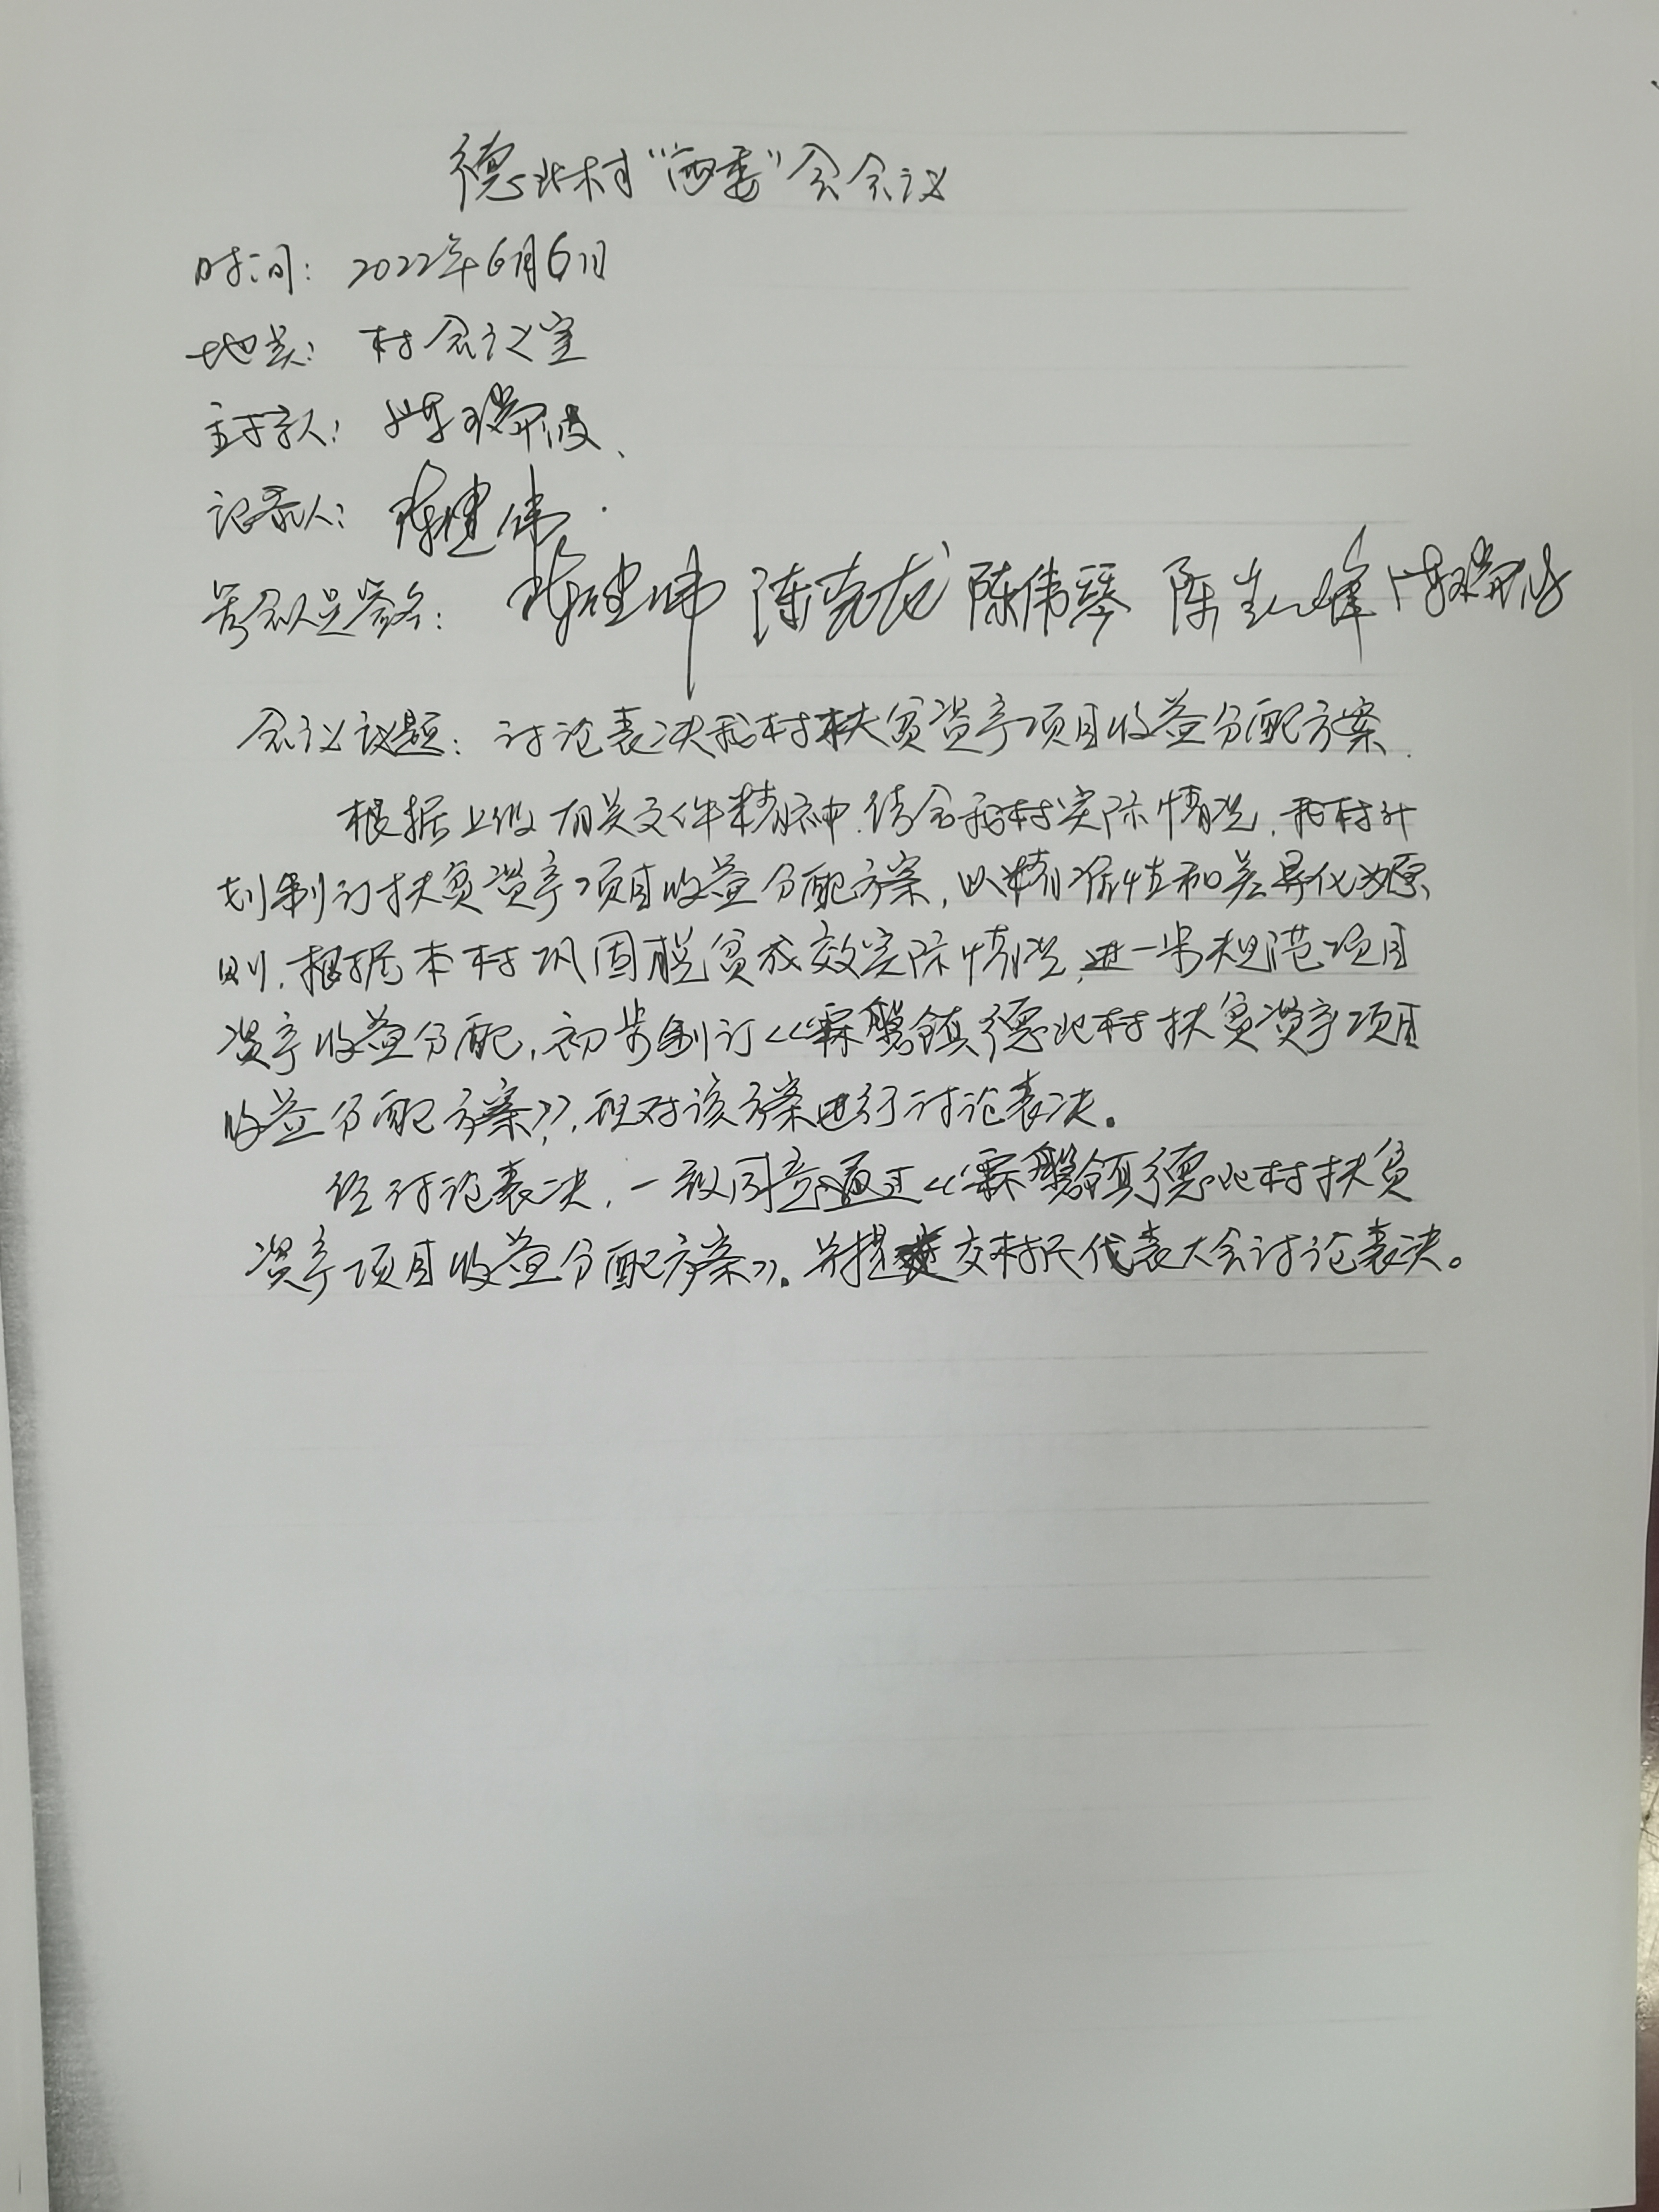 德北村“两委”会会议
时间：2022年6月6日
地点：村会议室
主持人：陈瑞波
记录人：陈建伟
与会人员签名：陈建伟 陈克龙 陈伟琴 陈 峰 陈瑞波
会议议题：讨论表决我村扶贫资产项目收益分配方案.
根据上级有关文件精神，结合我村实际情况，我村计
划制订扶贫资产项目收益分配方案，以精准性和差异化为原
则，根据本村巩固脱贫成效实际情况，进一步规范项目
资产收益分配，初步制订《霖磐镇德北村扶贫资产项目
收益分配方案》，现对该方案进行讨论表决。
经讨论表决，一致同意通过《霖磐镇德北村扶贫
资产项目收益分配方案》。并提交村民代表大会讨论表决。